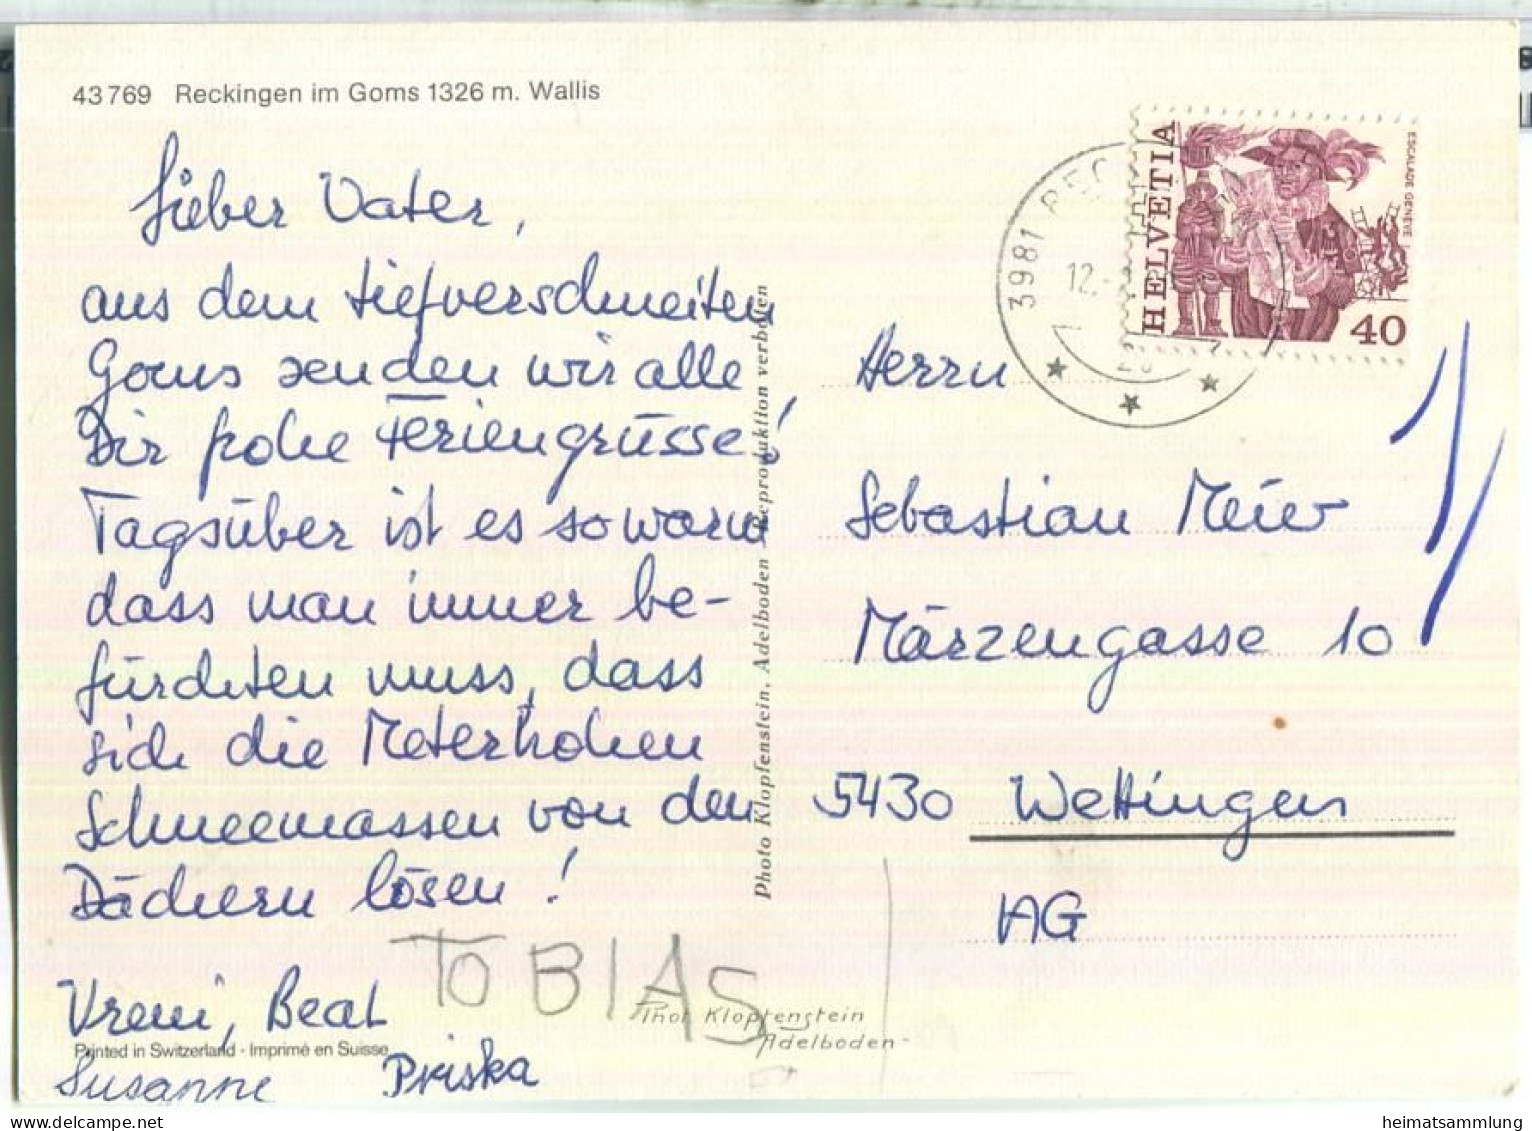 43769 Reckingen im Goms 1326 m. Wallis
Lieber Vater,
aus dem tiefverschneiten
Goms senden wir alle
Dir frohe Feriengrüsse!
Tagsüber ist es so warm
dass man immer be-
fürchten muss, dass
sich die Meterhohen
Schneemassen von den
Dächern lösen!
Vreni, Beat
TOBIAS
Susanne Priska
Printed in Switzerland - Imprimé en Suisse
Photo Klopfenstein, Adelboden Reproduktion verboten
Phot Klopfenstein
Adelboden
HELVETIA
ESCALADE GENÈVE
40
3981 REC
12.
Herrn
Sebastian Meier
Märzengasse 10
5430 Wettingen
AG
heimatsammlung